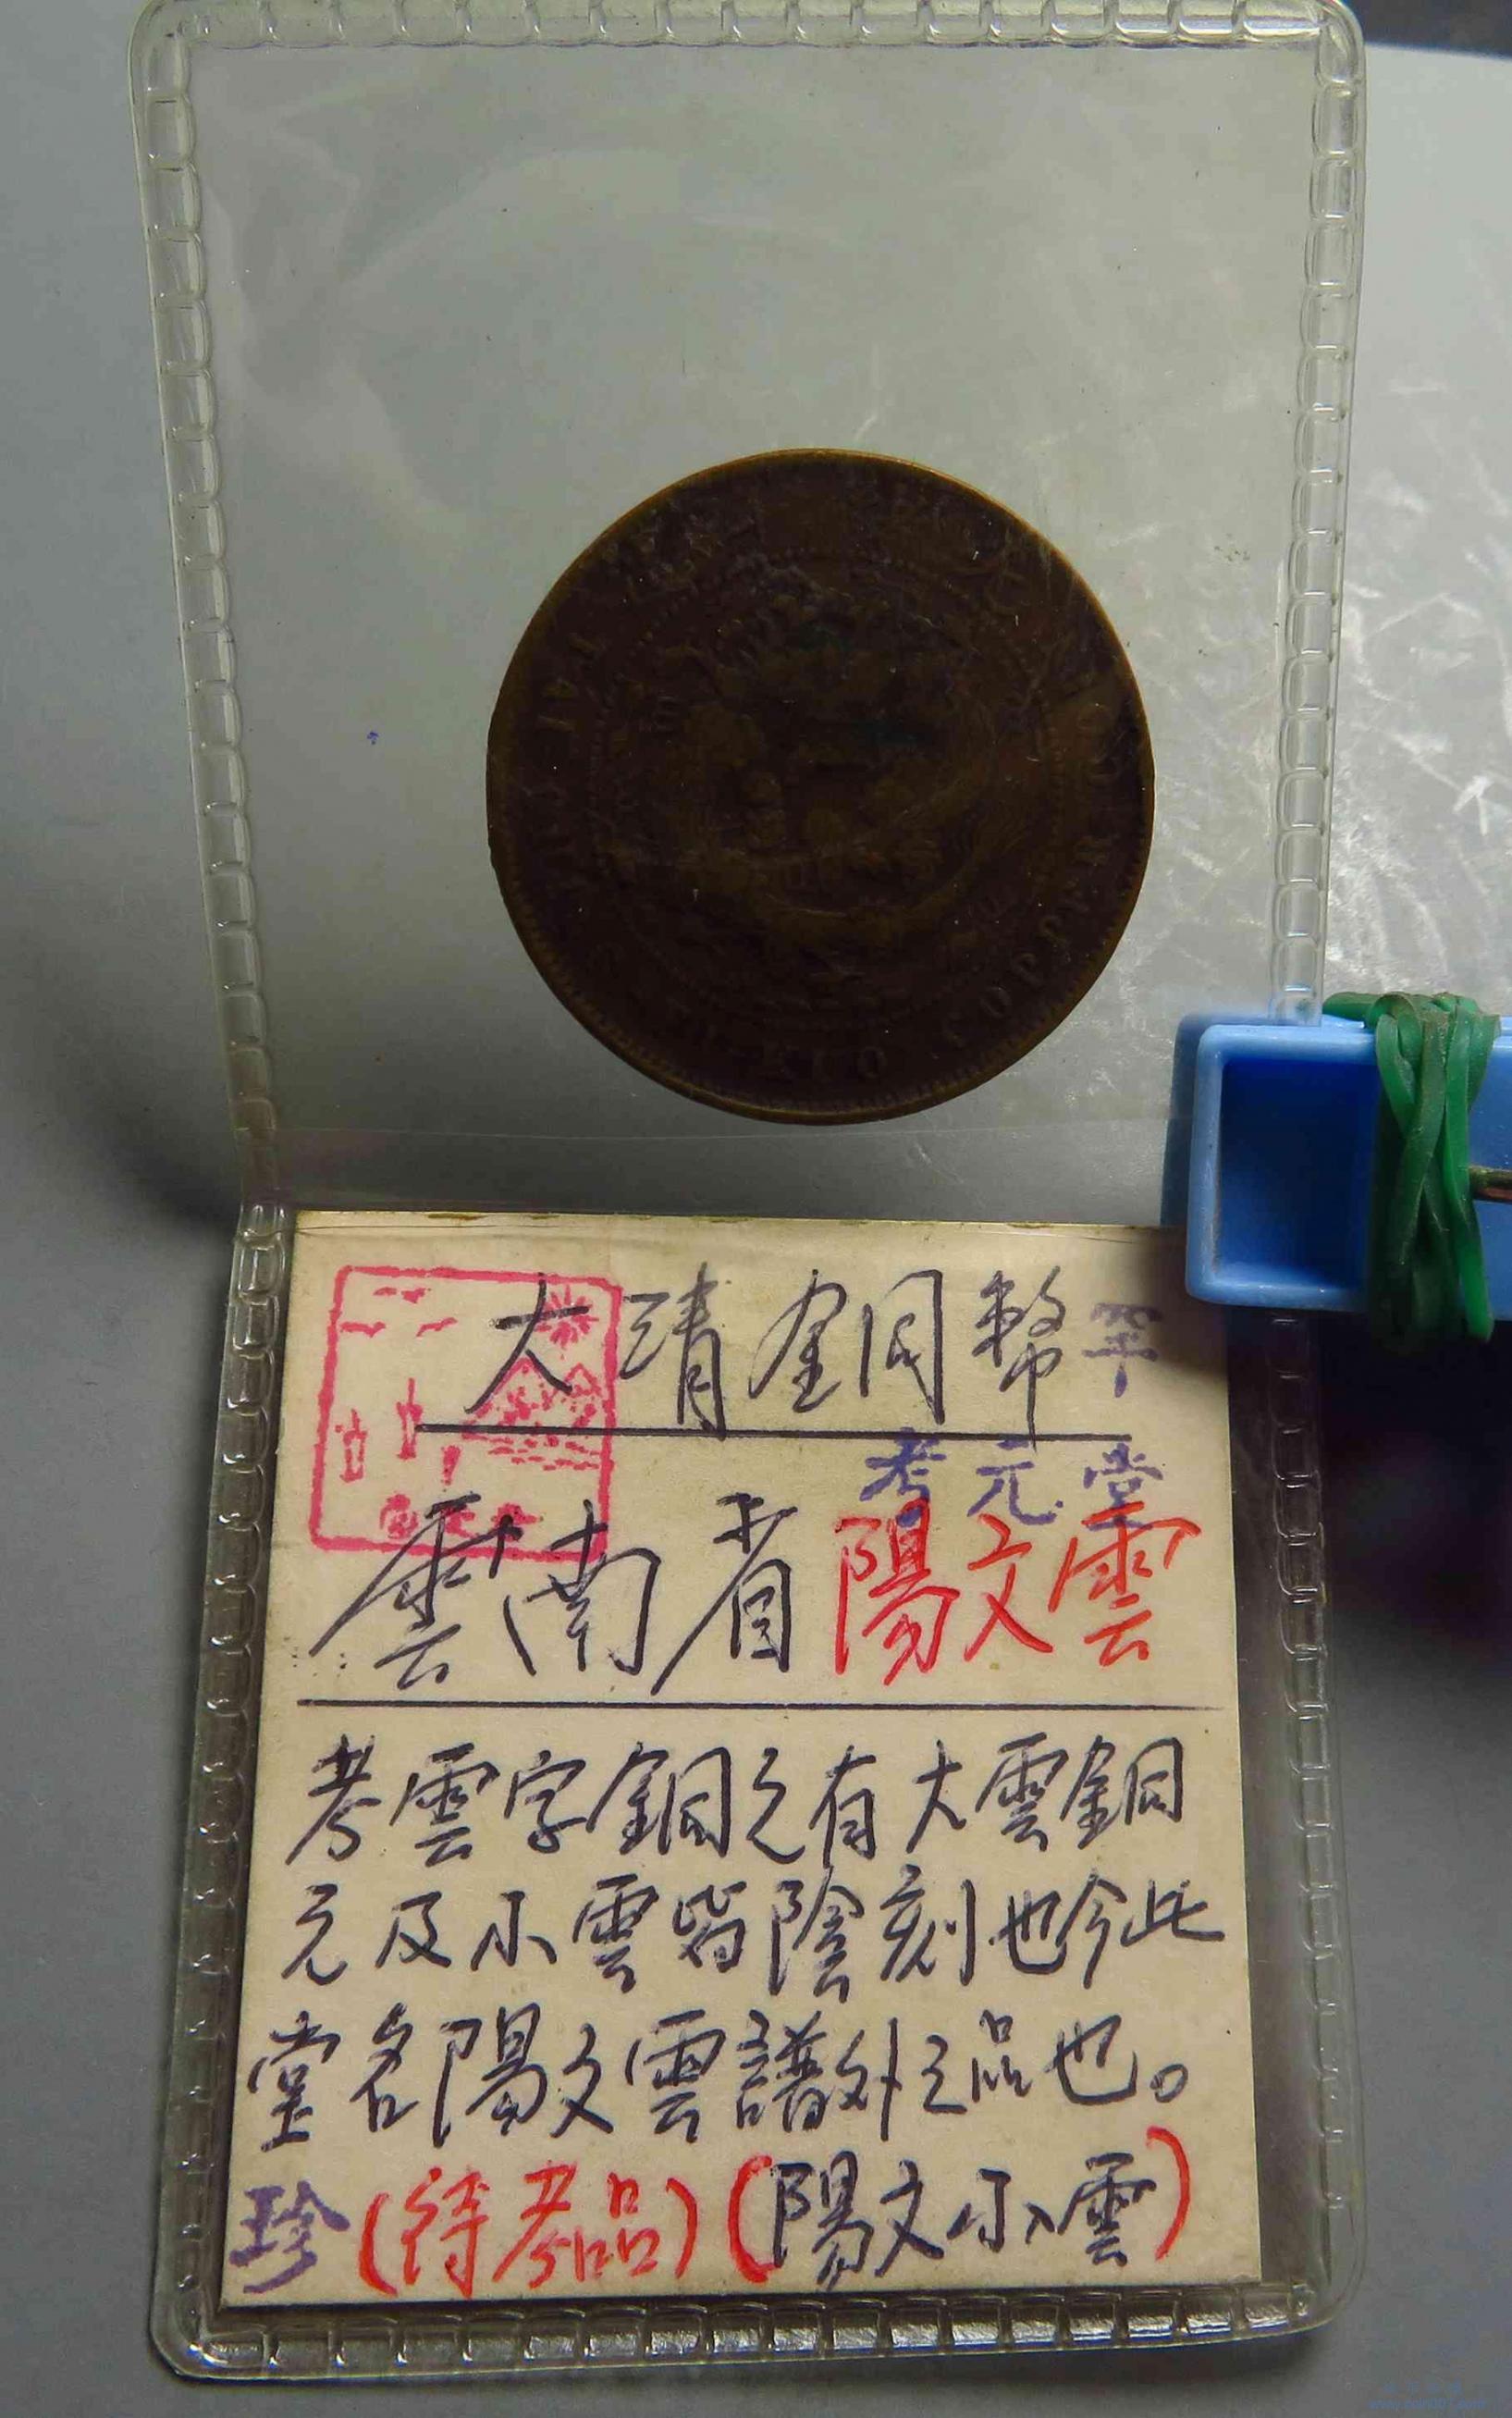 TAI-CHI
KUO COPPER CO
大清銅幣罕
考元堂
雲南省陽文雲
考雲字銅元有大雲銅
元及小雲皆陰刻也今此
堂名陽文雲譜外之品也。
珍(待考品)(陽文小雲)